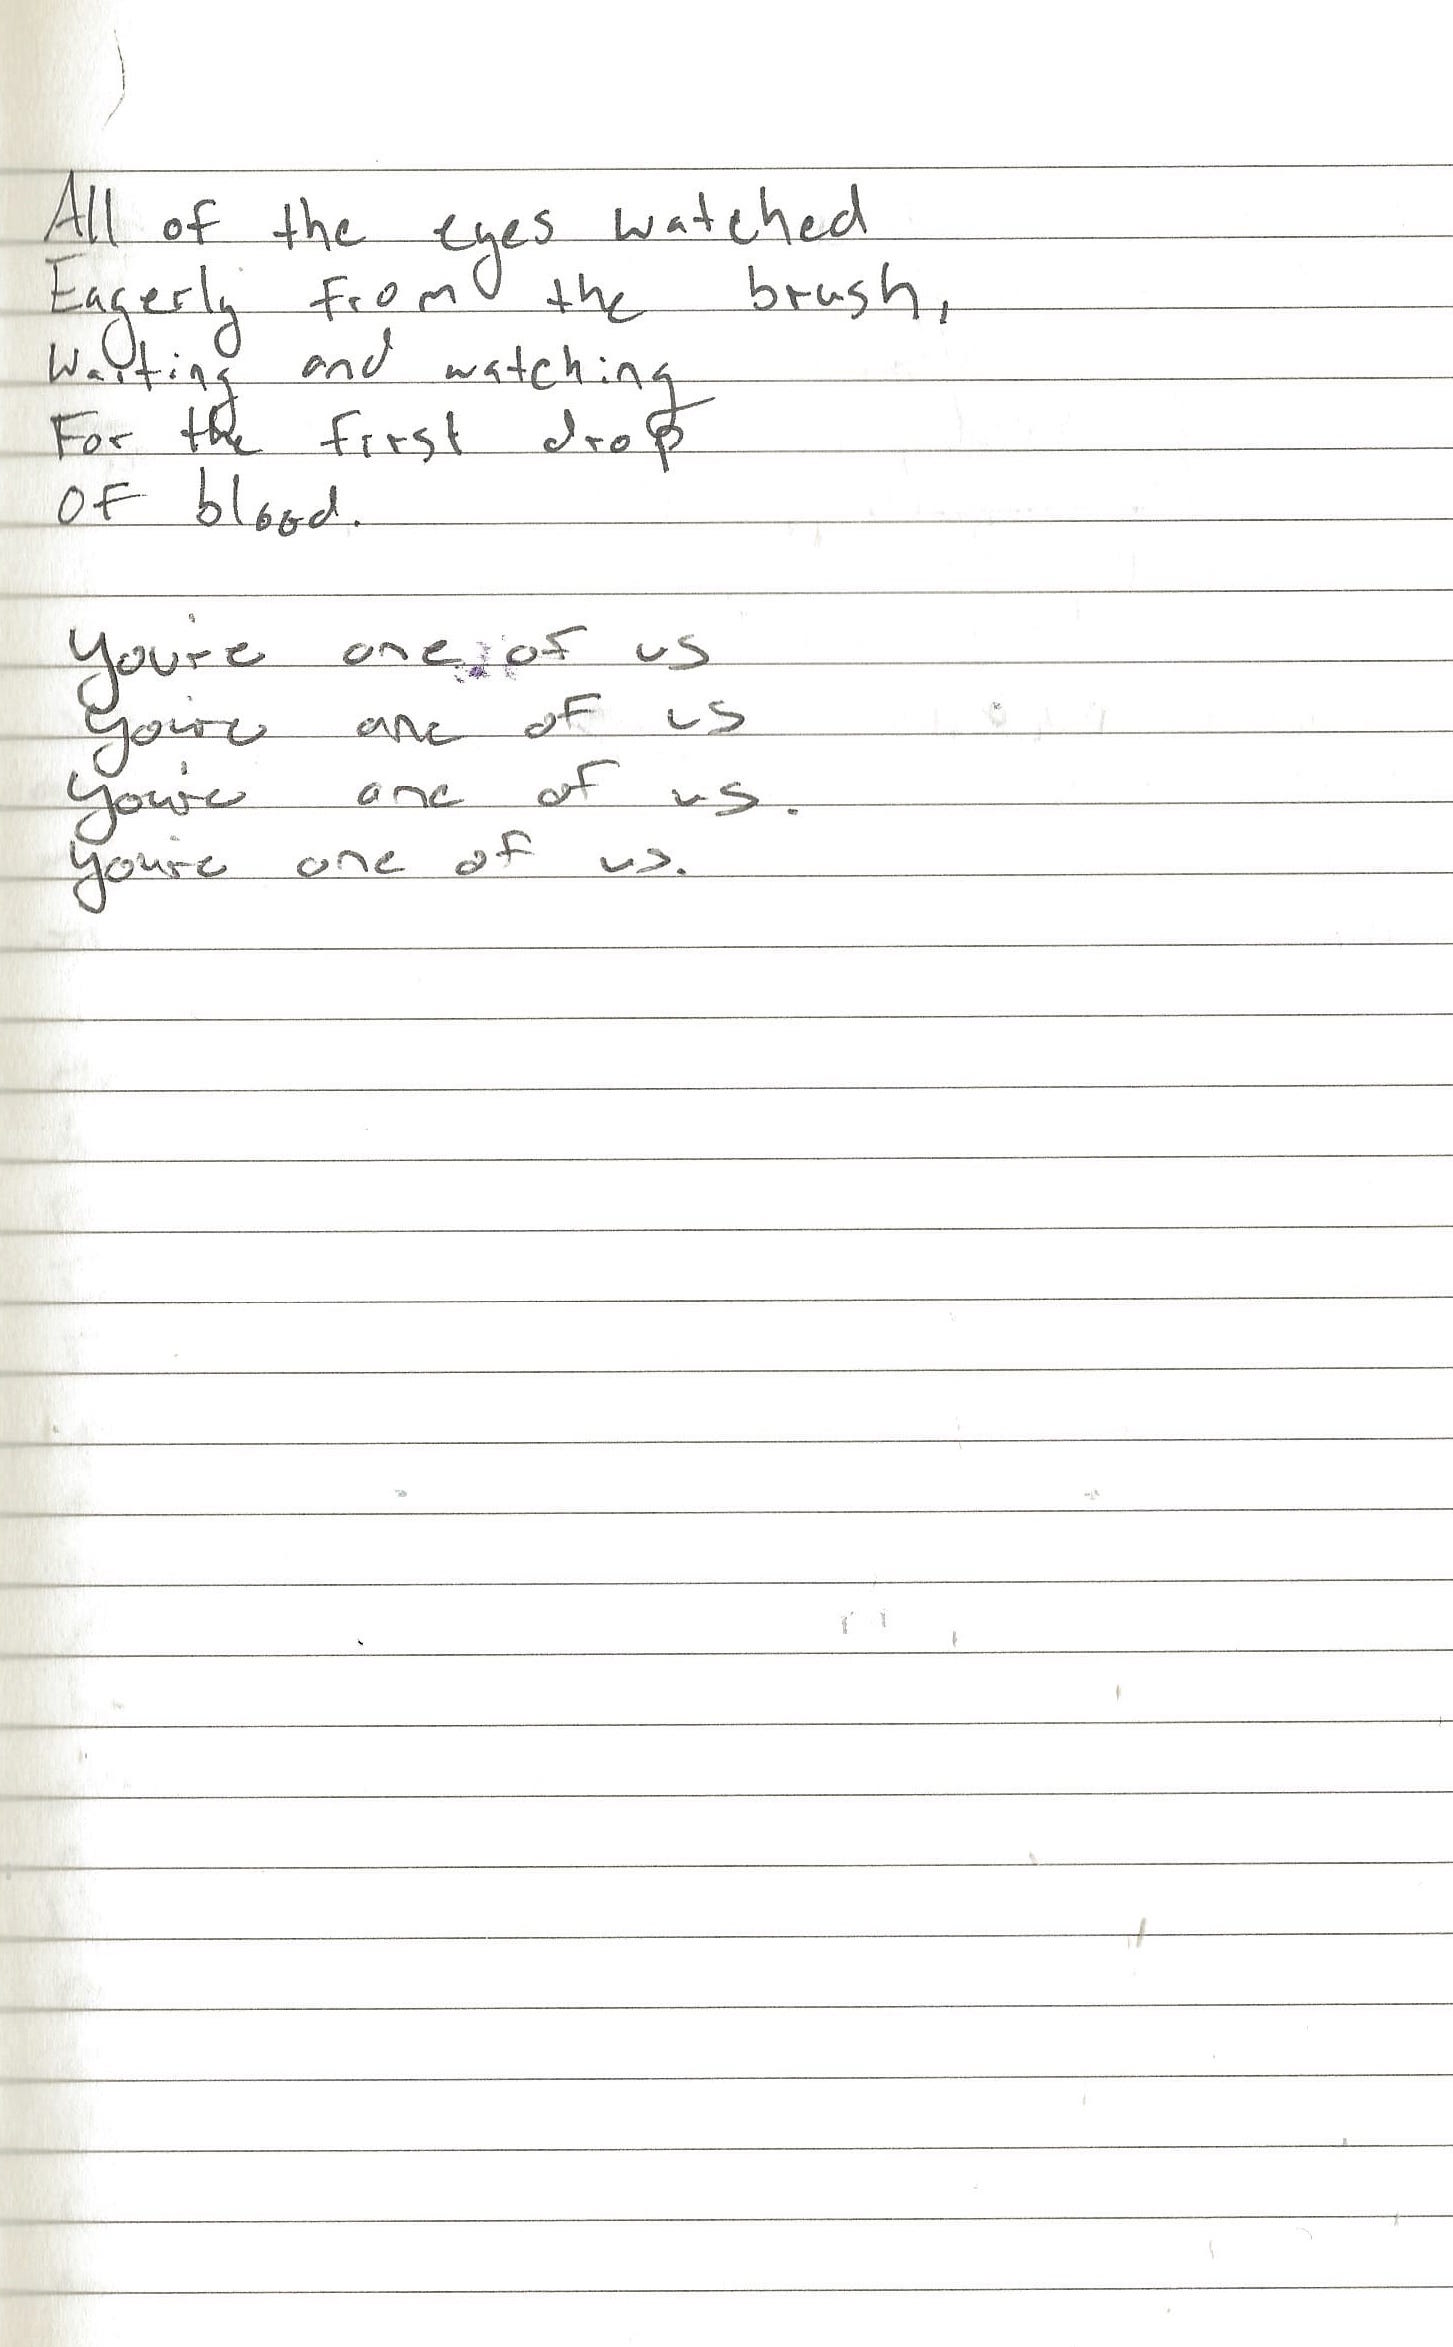 All of the eyes watched
Eagerly from the brush,
Waiting and watching
For the first drop
OF blood.
You're one of us
You're one of us
You're one of us.
You're one of us.